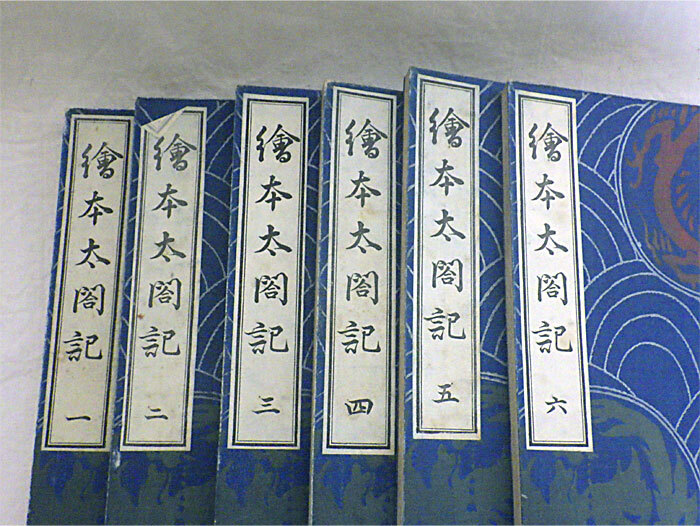 繪本太閤記 一
繪本太閤記 二
繪本太閤記 三
繪本太閤記 四
繪本太閤記 五
繪本太閤記 六